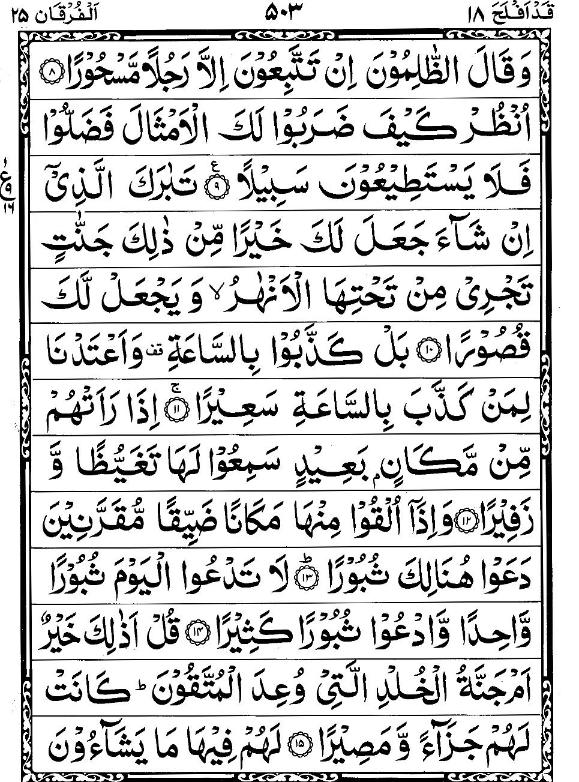 قَدْاَفْلَحَ ١٨ ٥٠٣ اَلْفُرْقَان ٢٥
وَقَالَ الظّٰلِمُوْنَ اِنْ تَتَّبِعُوْنَ اِلَّا رَجُلًا مَّسْحُوْرًا ۝٨
اُنْظُرْ كَيْفَ ضَرَبُوْا لَكَ الْاَمْثَالَ فَضَلُّوْا
فَلَا يَسْتَطِيْعُوْنَ سَبِيْلًا ۝٩ۧ تَبٰرَكَ الَّذِيْۤ
اِنْ شَآءَ جَعَلَ لَكَ خَيْرًا مِّنْ ذٰلِكَ جَنّٰتٍ
تَجْرِيْ مِنْ تَحْتِهَا الْاَنْهٰرُ ۙ وَيَجْعَلْ لَّكَ
قُصُوْرًا ۝١٠ بَلْ كَذَّبُوْا بِالسَّاعَةِ قف وَاَعْتَدْنَا
لِمَنْ كَذَّبَ بِالسَّاعَةِ سَعِيْرًا ۝١١ۚ اِذَا رَاَتْهُمْ
مِّنْ مَّكَانٍۭ بَعِيْدٍ سَمِعُوْا لَهَا تَغَيُّظًا وَّ
زَفِيْرًا ۝١٢ وَاِذَاۤ اُلْقُوْا مِنْهَا مَكَانًا ضَيِّقًا مُّقَرَّنِيْنَ
دَعَوْا هُنَالِكَ ثُبُوْرًا ۝١٣ؕ لَا تَدْعُوا الْيَوْمَ ثُبُوْرًا
وَّاحِدًا وَّادْعُوْا ثُبُوْرًا كَثِيْرًا ۝١٤ قُلْ اَذٰلِكَ خَيْرٌ
اَمْ جَنَّةُ الْخُلْدِ الَّتِيْ وُعِدَ الْمُتَّقُوْنَ ؕ كَانَتْ
لَهُمْ جَزَآءً وَّمَصِيْرًا ۝١٥ لَهُمْ فِيْهَا مَا يَشَآءُوْنَ